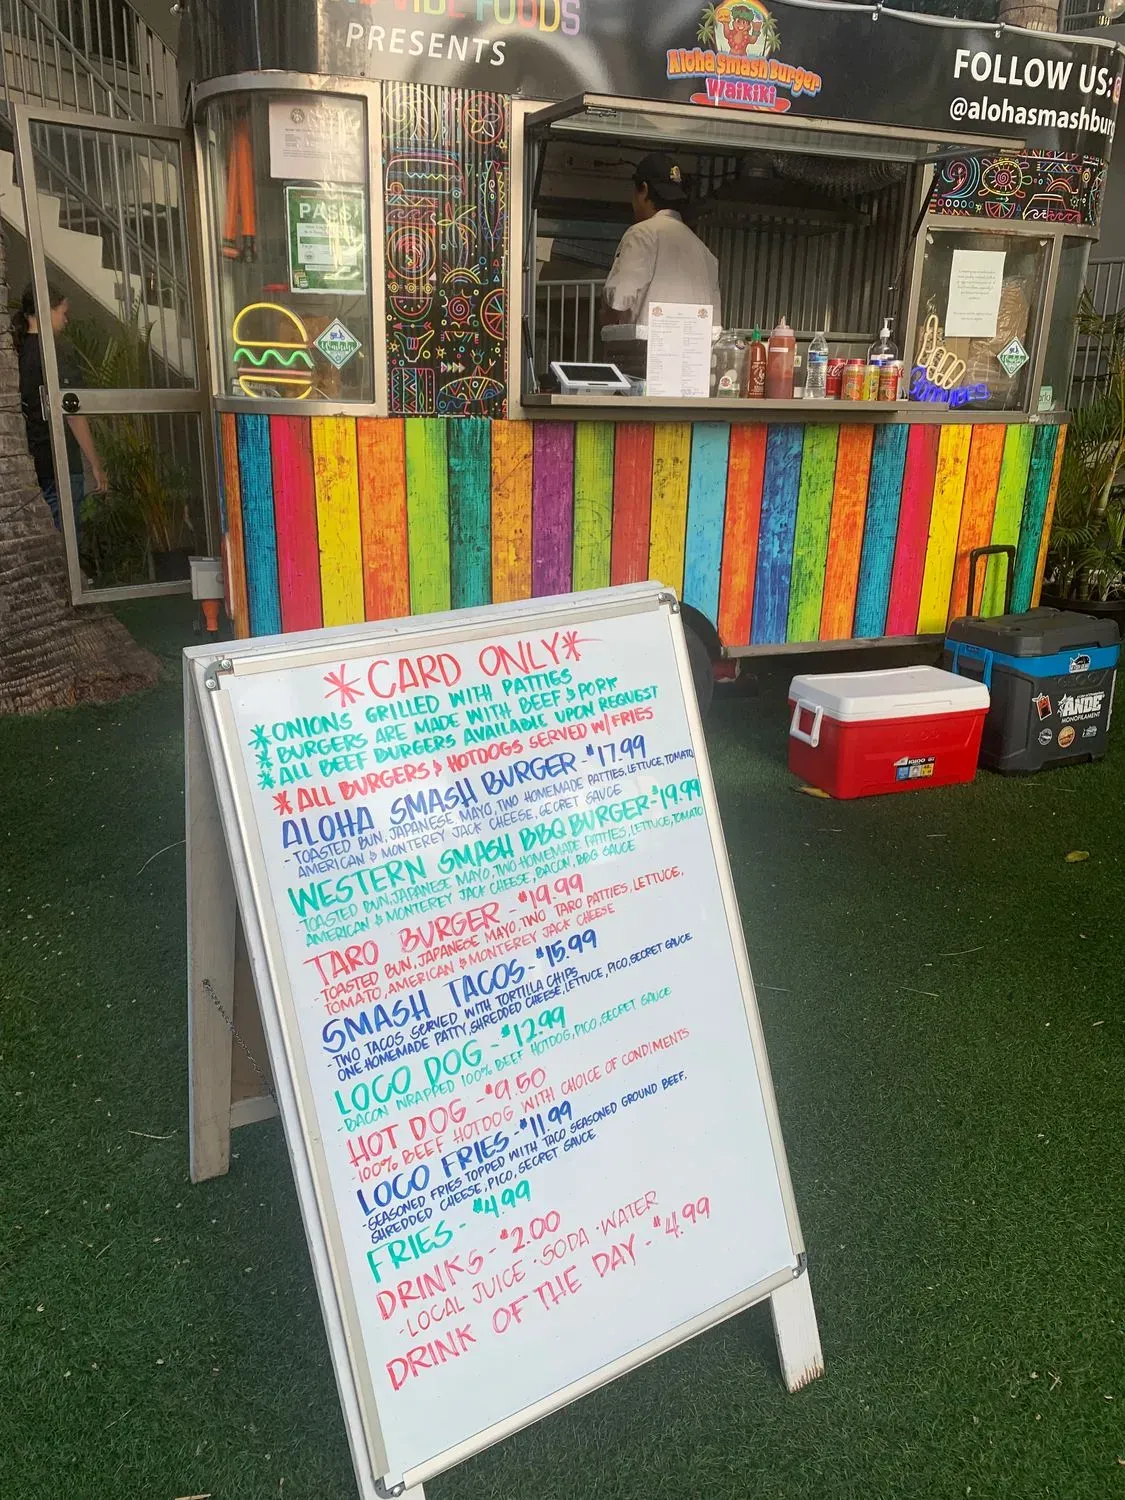 FOODS
PRESENTS
Aloha Smash Burger
Waikiki
FOLLOW US:
@alohasmashburg
PASS
*CARD ONLY*
*ONIONS GRILLED WITH PATTIES
*BURGERS ARE MADE WITH BEEF & PORK
*ALL BEEF BURGERS AVAILABLE UPON REQUEST
*ALL BURGERS & HOTDOGS SERVED W/FRIES
ALOHA SMASH BURGER - $17.99
- TOASTED BUN, JAPANESE MAYO, TWO HOMEMADE PATTIES, LETTUCE, TOMATO,
AMERICAN & MONTEREY JACK CHEESE, SECRET SAUCE
WESTERN SMASH BBQ BURGER - $19.99
- TOASTED BUN, JAPANESE MAYO, TWO HOMEMADE PATTIES, LETTUCE, TOMATO
AMERICAN & MONTEREY JACK CHEESE, BACON, BBQ SAUCE
TARO BURGER - $19.99
- TOASTED BUN, JAPANESE MAYO, TWO TARO PATTIES, LETTUCE,
TOMATO, AMERICAN & MONTEREY JACK CHEESE
SMASH TACOS - $15.99
- TWO TACOS SERVED WITH TORTILLA CHIPS
ONE HOMEMADE PATTY, SHREDDED CHEESE, LETTUCE, PICO, SECRET SAUCE
LOCO DOG - $12.99
- BACON WRAPPED 100% BEEF HOTDOG, PICO, SECRET SAUCE
HOT DOG - $9.50
- 100% BEEF HOTDOG WITH CHOICE OF CONDIMENTS
LOCO FRIES - $11.99
- SEASONED FRIES TOPPED WITH TACO SEASONED GROUND BEEF,
SHREDDED CHEESE, PICO, SECRET SAUCE
FRIES - $4.99
DRINKS - $2.00
- LOCAL JUICE · SODA · WATER
DRINK OF THE DAY - $4.99
IGLOO
ANDE
MONOFILAMENT